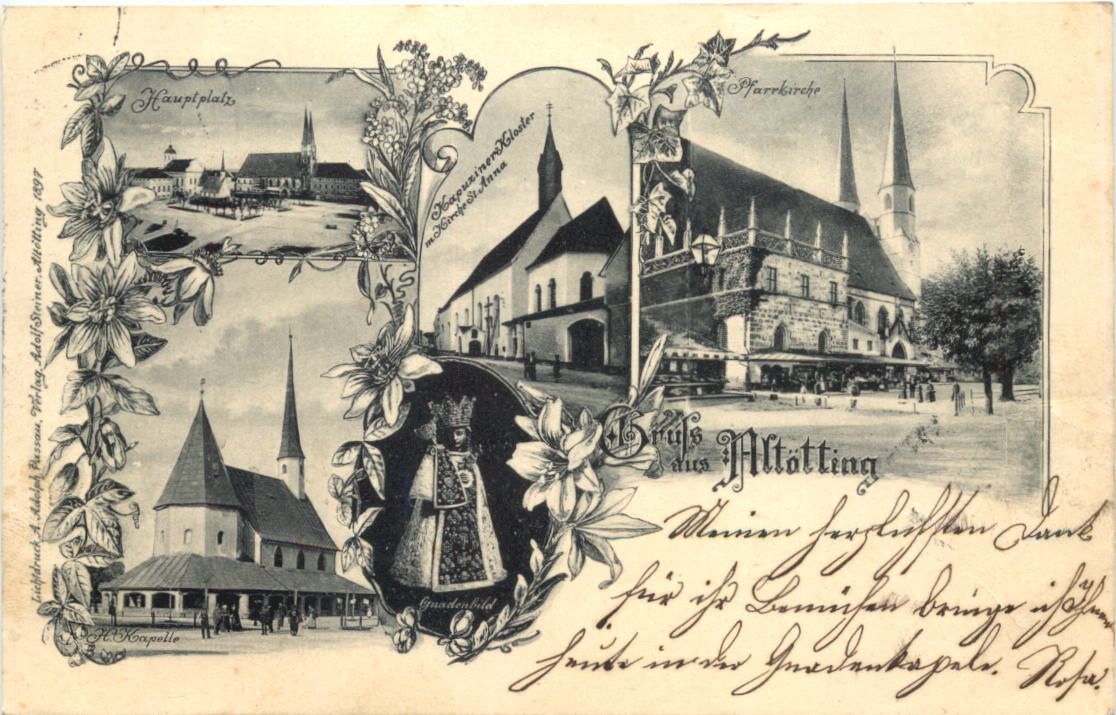 Hauptplatz
Kapuziner Kloster
m. Kirche St. Anna
Pfarrkirche
Lichtdruck A. Adolph, Passau, Verlag Adolf Steiner, Altötting 1897
Gruss
aus Altötting
Gnadenbild
H. Kapelle
Meinen herzlichsten Dank
für ihr Bemühen bringe ich Ihnen
heute in der Gnadenkapele. Rosa.